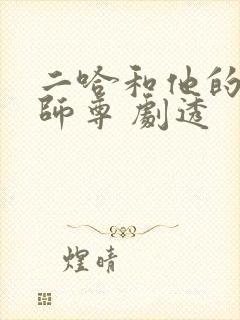 二哈和他的
師尊 劇透
煌晴